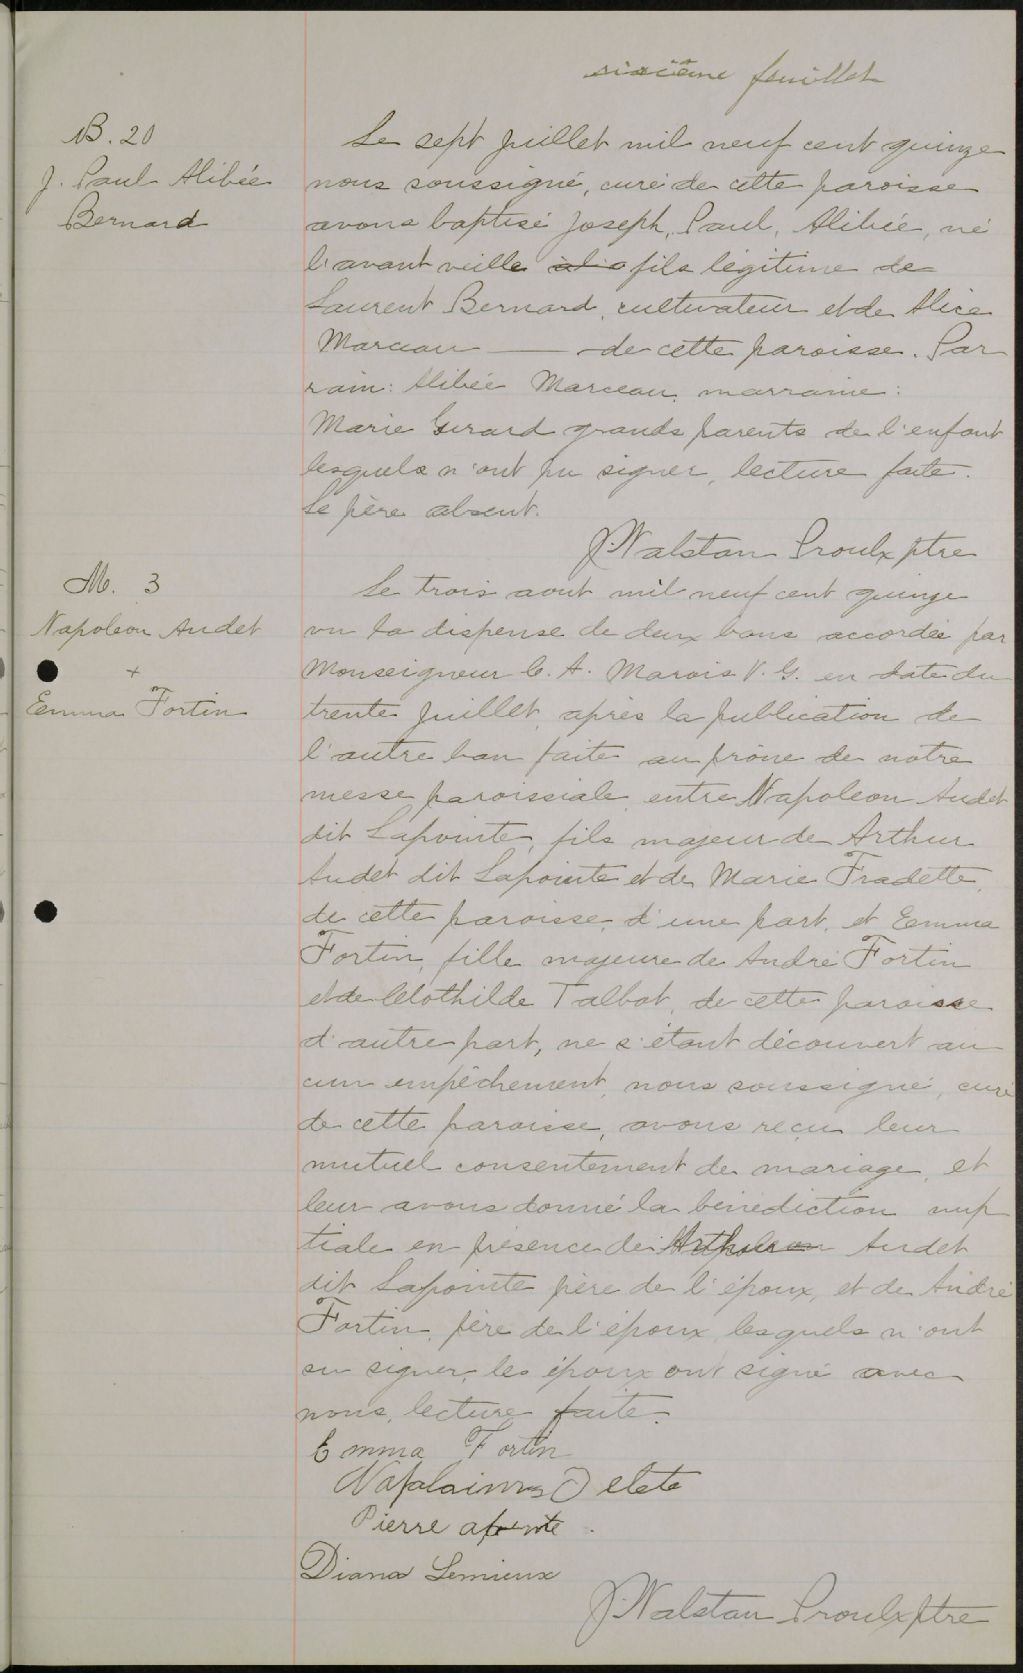 sixième feuillet
B. 20
J. Paul Alibée
Bernard
Le sept juillet mil neuf cent quinze
nous soussigné, curé de cette paroisse
avons baptisé Joseph, Paul, Alibée, né
l'avant veille fils légitime de
Laurent Bernard, cultivateur et de Alice
Marceau de cette paroisse. Par
rain: Alibée Marceau, marraine:
Marie Girard grands parents de l'enfant
lesquels n'ont pu signer, lecture faite.
Le père absent.
J. Walstan Proulx ptre
M. 3
Napoléon Audet
+
Emma Fortin
Le trois aout mil neuf cent quinze
vu la dispense de deux bans accordée par
Monseigneur C. A. Marois V. G. en date du
trente juillet, après la publication de
l'autre ban faite au prône de notre
messe paroissiale entre Napoléon Audet
dit Lapointe, fils majeur de Arthur
Audet dit Lapointe et de Marie Fradette,
de cette paroisse, d'une part, et Emma
Fortin, fille majeure de André Fortin
et de Clothilde Talbot, de cette paroisse
d'autre part, ne s'étant découvert au
cun empêchement, nous soussigné, curé
de cette paroisse, avons reçu leur
mutuel consentement de mariage, et
leur avons donné la bénédiction nup
tiale en présence de Audet
dit Lapointe père de l'époux, et de André
Fortin, père de l'époux lesquels n'ont
su signer, les époux ont signé avec
nous, lecture faite.
Emma Fortin
Pierre
Diana Lemieux
J. Walstan Proulx ptre